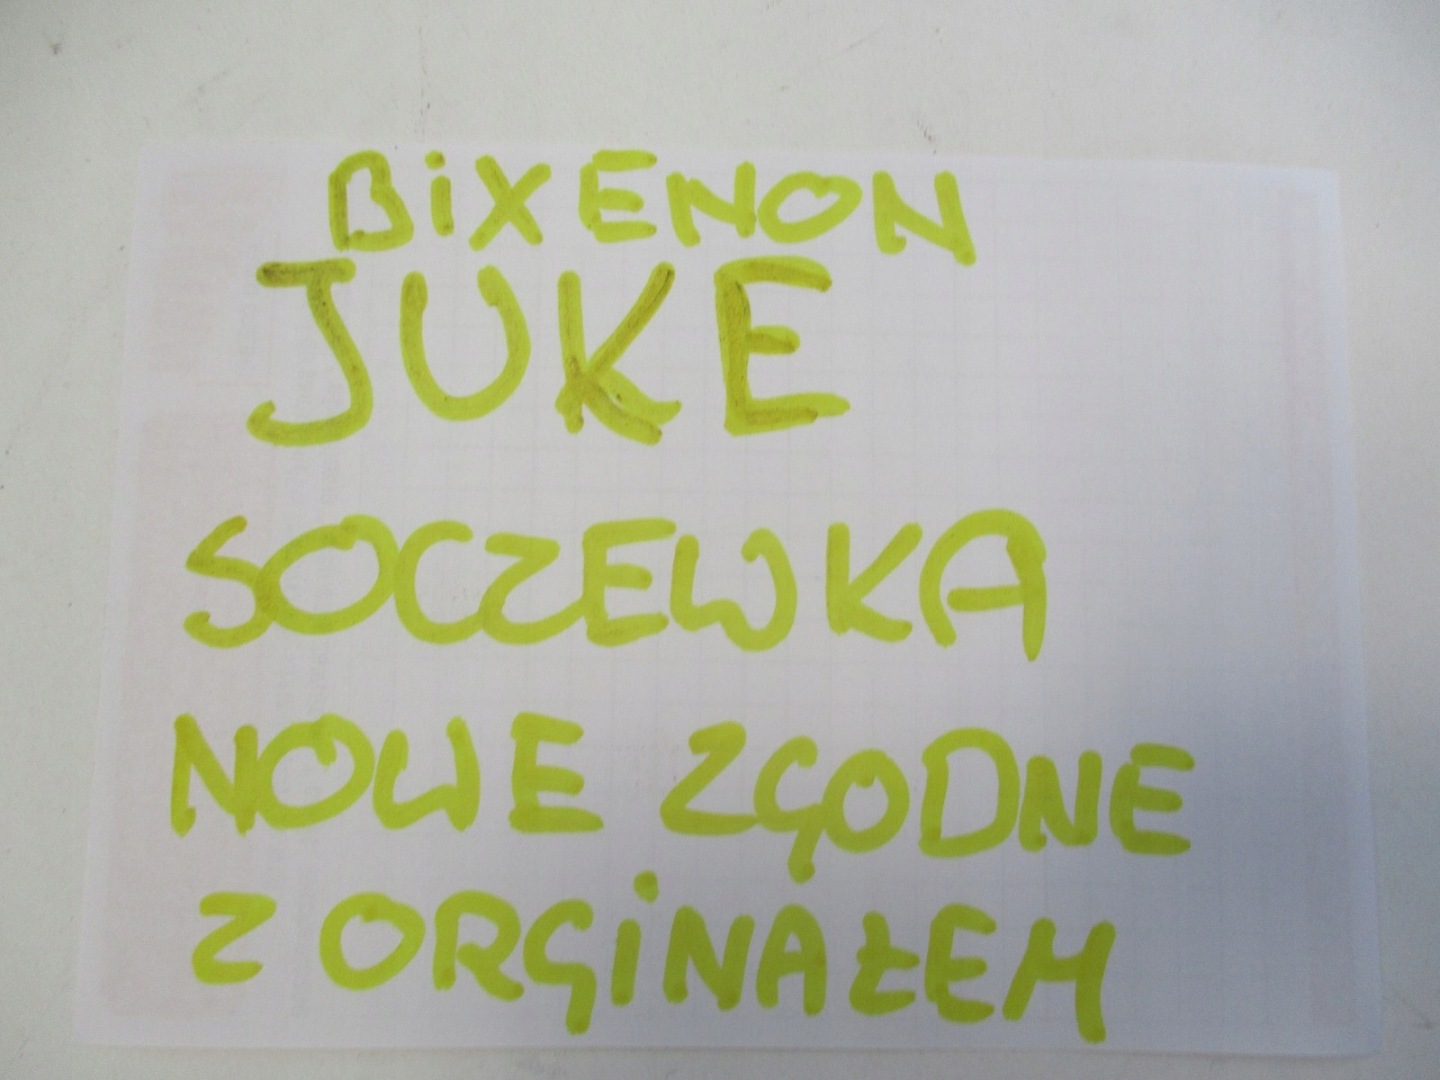 BiXENON
JUKE
SOCZEWKA
NOWE ZGODNE
Z ORGiNAŁEM